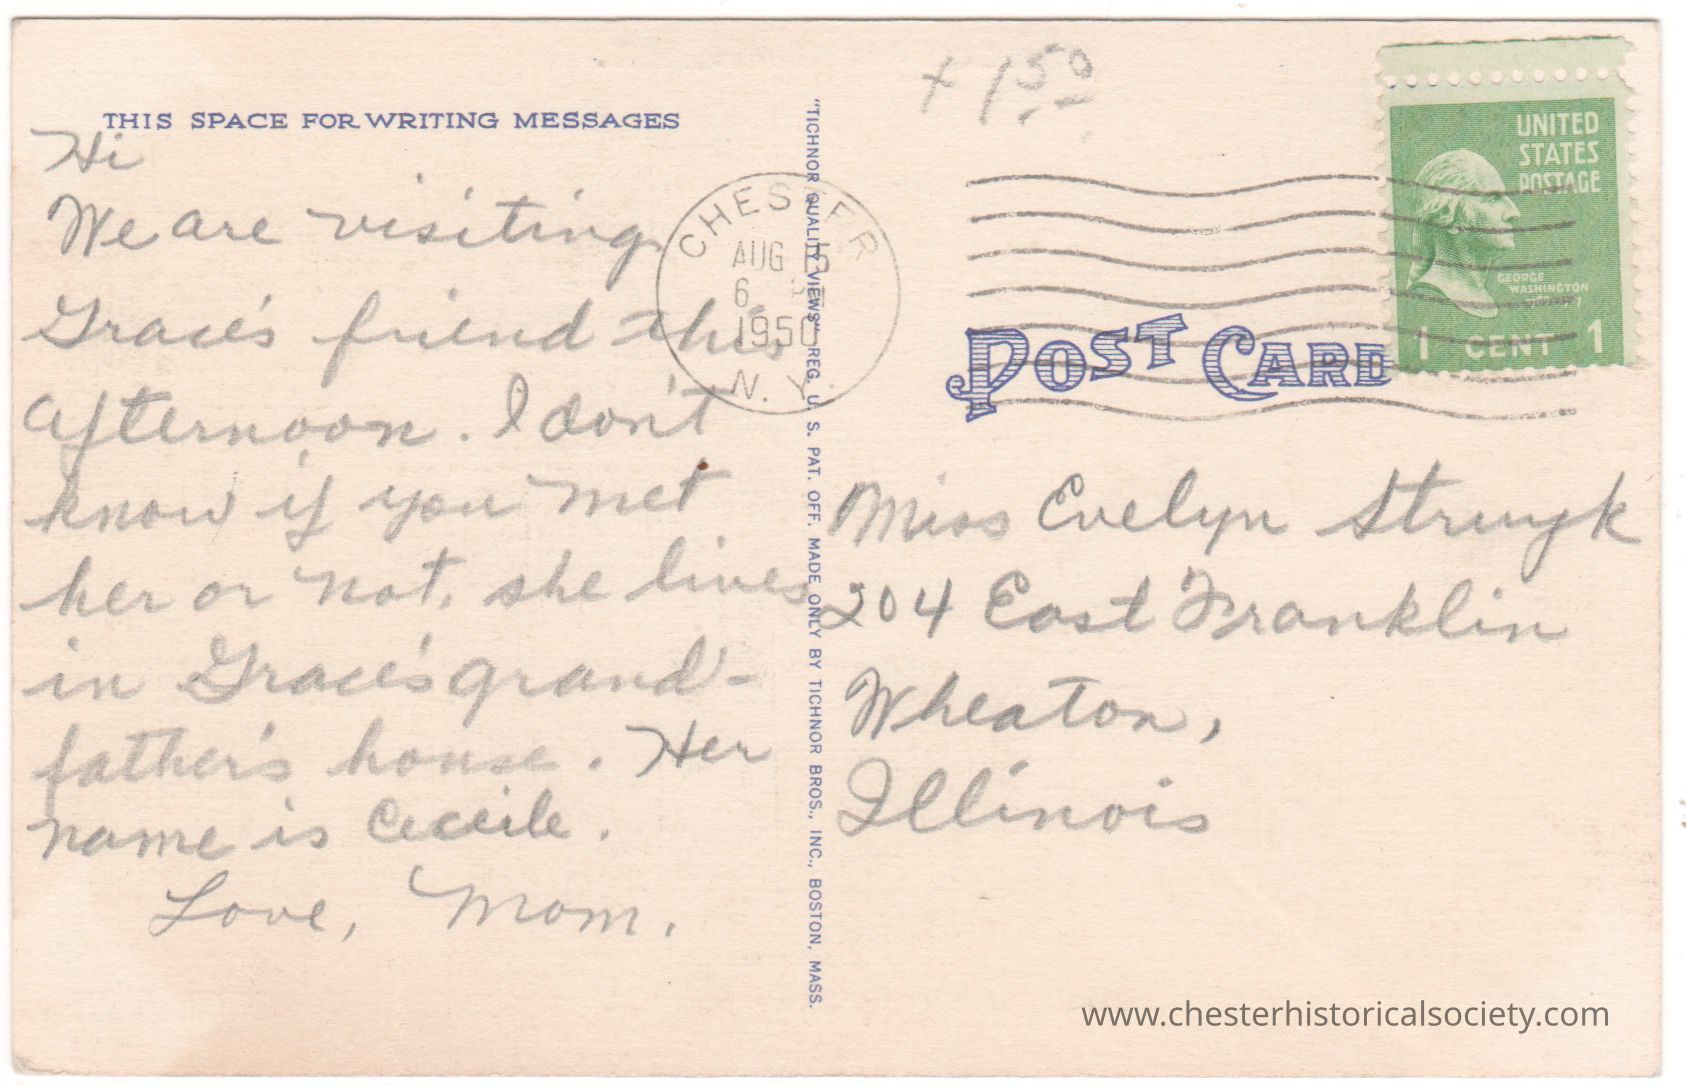 THIS SPACE FOR WRITING MESSAGES
Hi
We are visiting
Grace's friend this
afternoon. I don't
know if you met
her or not, she lives
in Grace's grand-
father's house. Her
name is Ceceile.
Love, Mom.
"TICHNOR QUALITY VIEWS" REG. U. S. PAT. OFF. MADE ONLY BY TICHNOR BROS., INC., BOSTON, MASS.
CHESTER
AUG 15
6 PM
1950
N. Y.
+ 150
UNITED
STATES
POSTAGE
GEORGE
WASHINGTON
1 CENT 1
POST CARD
Miss Evelyn Struyk
204 East Franklin
Wheaton,
Illinois
www.chesterhistoricalsociety.com